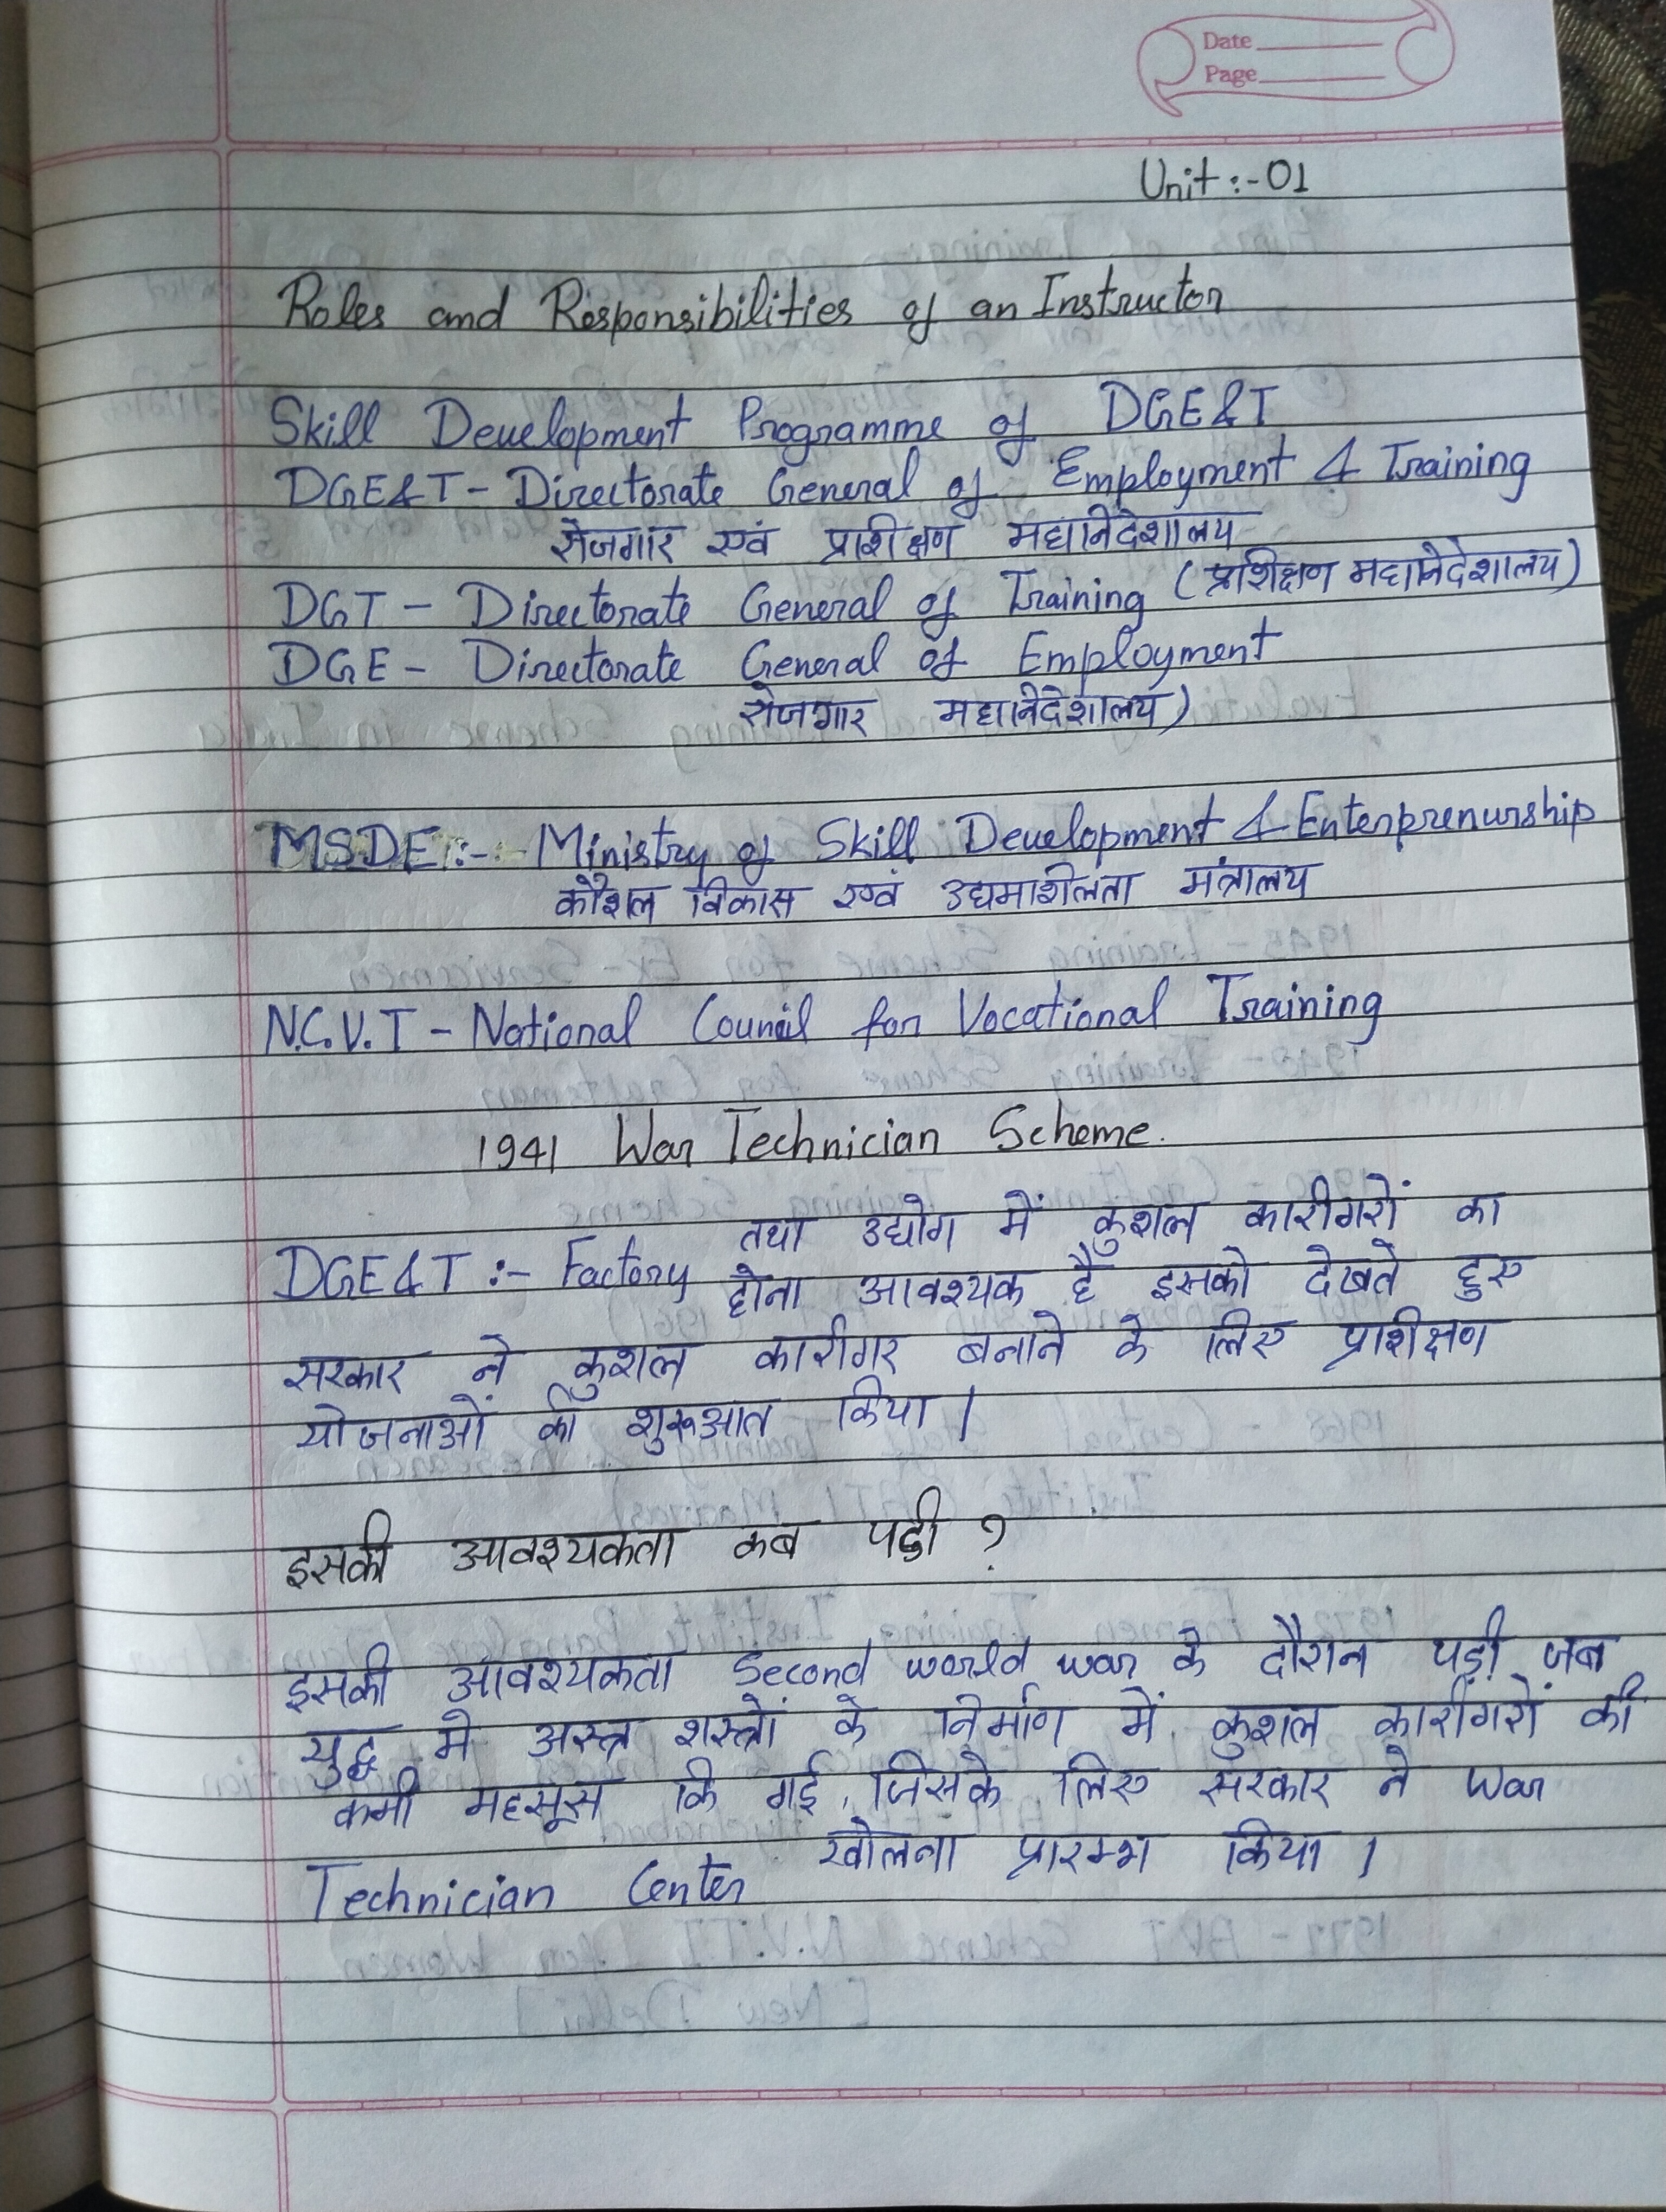 Date
Page
Unit :- 01
Roles and Responsibilities of an Instructor
Skill Development Programme of DGE&T
DGE&T - Directorate General of Employment & Training
रोजगार एवं प्राशीक्षण महानिदेशालय
DGT - Directorate General of Training (प्रशिक्षण महानिदेशालय)
DGE - Directorate General of Employment
रोजगार महानिदेशालय)
MSDE :- Ministry of Skill Development & Enterprenurship
कौशल विकास एवं उद्यमाशीलता मंत्रालय
N.C.V.T - National Council for Vocational Training
1941 War Technician Scheme.
DGE&T :- Factory तथा उद्योग में कुशल कारीगरों का
होना आवश्यक है इसको देखते हुए
सरकार ने कुशल कारीगर बनाने के लिए प्राशीक्षण
योजनाओं की शुरूआत किया |
इसकी आवश्यकता कब पड़ी ?
इसकी आवश्यकता Second world war के दौरान पड़ी जब
युद्ध मे अस्त्र शस्त्रों के निर्माण में कुशल कारीगरों की
कमी महसूस कि गई, जिसके लिए सरकार ने War
Technician Center खोलना प्रारम्भ किया |